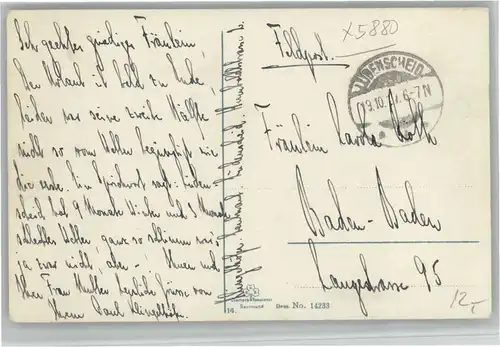 Sehr geehrtes gnädiges Fräulein,
Der Urlaub ist bald zu Ende,
leider war seine zweite Hälfte
nicht so vom Wetter begünstigt wie
die erste. Ein Sprichwort sagt: Lüden-
scheid hat 9 Monate Winter und 3 Monate
schlechtes Wetter ganz so schlimm war's
ja zwar nicht, aber -! Ihnen und
Ihrer Frau Mutter herzliche Grüsse von
Ihrem Paul
x5880
Feldpost.
LÜDENSCHEID
19.10.17. 6-7N
Fräulein
Baden-Baden
Langestrasse 95
Dortmund
16. Dess. No. 14233
12,-